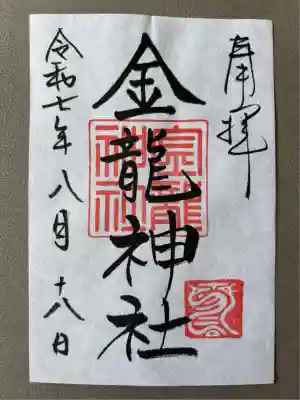 奉拝
金龍神社
令和七年八月十八日